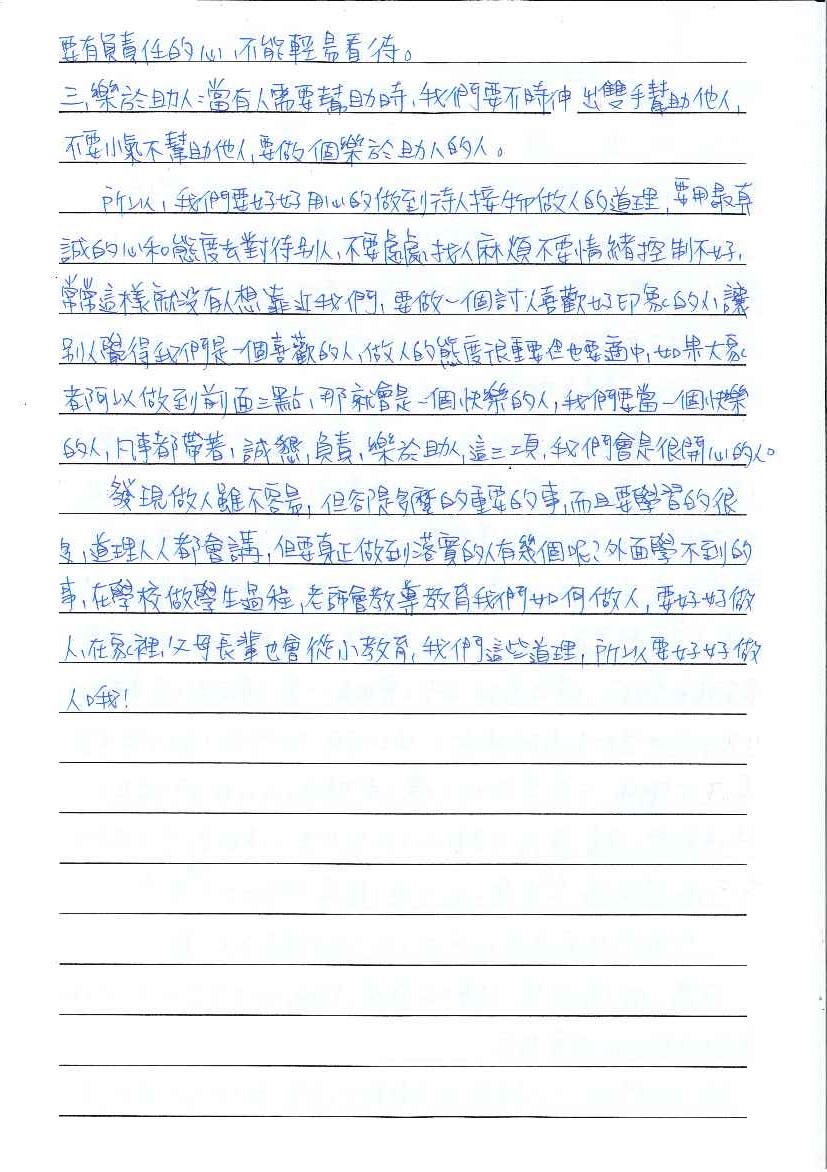 要有負責任的心,不能輕易看待。
三,樂於助人:當有人需要幫助時,我們要不時伸出雙手幫助他人,
不要小氣不幫助他人,要做個樂於助人的人。
所以,我們要好好用心的做到待人接物做人的道理,要用最真
誠的心和態度去對待別人,不要處處找人麻煩不要情緒控制不好,
常常這樣就沒有人想靠近我們,要做一個討人喜歡好印象的人,讓
別人覺得我們是一個喜歡的人,做人的態度很重要但也要適中,如果大家
都可以做到前面三點,那就會是一個快樂的人,我們要當一個快樂
的人,凡事都帶著,誠懇,負責,樂於助人,這三項,我們會是很開心的人。
發現做人雖不容易,但卻是多麼的重要的事,而且要學習的很
多,道理人人都會講,但要真正做到落實的人有幾個呢?外面學不到的
事,在學校做學生過程,老師會教導教育我們如何做人,要好好做
人,在家裡,父母長輩也會從小教育,我們這些道理,所以要好好做
人哦!